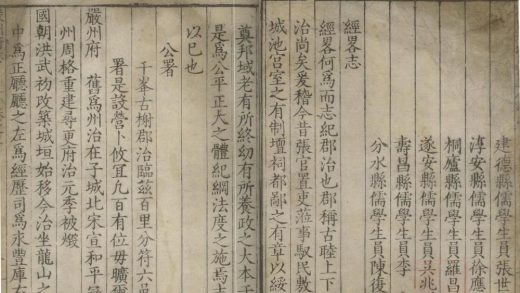 建德縣儒學生員張世
淳安縣儒學生員徐應
桐廬縣儒學生員羅昌
遂安縣儒學生員吳兆
壽昌縣儒學生員李
分水縣儒學生員陳復
經畧志
經畧何爲而志紀郡治也郡稱古睦上下
治尚矣爰稽今昔張官置吏蒞事馭民敷
城池宮室之有制壇祠都鄙之有章以綏
奠邦域老有所終幼有所養政之大本于
是爲公平正大之體紀綱法度之施焉志
以巳也
公署
千峯古榭郡治臨茲百里分符六邑
署是設營卜攸宜凡百有位毋曠爾
嚴州府 舊爲州治在子城北宋宣和平
州周格重建尋更府治元季被燬
國朝洪武初改築城垣始移今治坐龍山之
中爲正廳廳之左爲經歷司爲永豐庫右